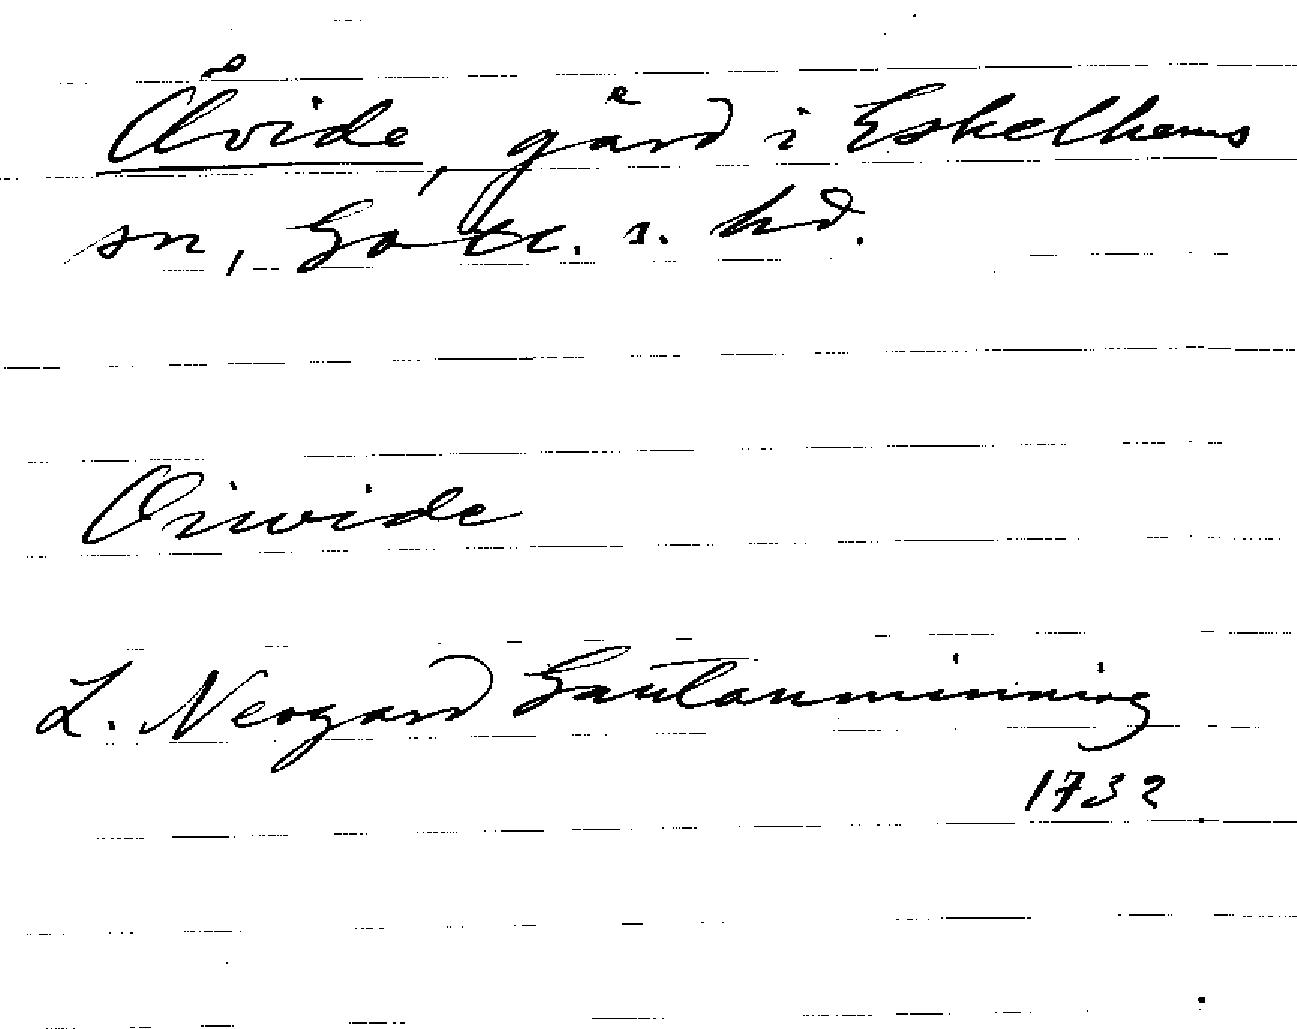 Åvide, gård i Eskelhems
sn, Gotl. s. hd.
Oriwide
L. Neogard Gautauminning
1732